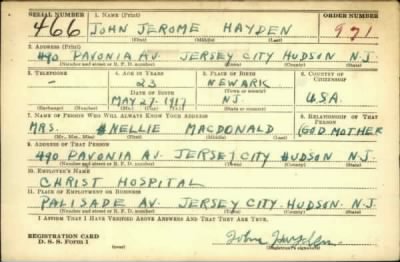 SERIAL NUMBER 1. NAME (Print) ORDER NUMBER
466 JOHN JEROME HAYDEN 971
(First) (Middle) (Last)
2. ADDRESS (Print)
490 PAVONIA AV. JERSEY CITY HUDSON N.J.
(Number and street or R. F. D. number) (Town) (County) (State)
3. TELEPHONE 4. AGE IN YEARS 5. PLACE OF BIRTH 6. COUNTRY OF CITIZENSHIP
- 23 NEWARK
(Town or county)
DATE OF BIRTH
MAY 27 1917 N.J. U.S.A.
(Exchange) (Number) (Mo.) (Day) (Yr.) (State or country)
7. NAME OF PERSON WHO WILL ALWAYS KNOW YOUR ADDRESS 8. RELATIONSHIP OF THAT PERSON
MRS. NELLIE MACDONALD GOD MOTHER
(Mr., Mrs., Miss) (First) (Middle) (Last)
9. ADDRESS OF THAT PERSON
490 PAVONIA AV. JERSEY CITY HUDSON N.J.
(Number and street or R. F. D. number) (Town) (County) (State)
10. EMPLOYER'S NAME
CHRIST HOSPITAL
11. PLACE OF EMPLOYMENT OR BUSINESS
PALISADE AV. JERSEY CITY HUDSON N.J.
(Number and street or R. F. D. number) (Town) (County) (State)
I AFFIRM THAT I HAVE VERIFIED ABOVE ANSWERS AND THAT THEY ARE TRUE.
REGISTRATION CARD
D. S. S. Form 1 John Hayden
(Registrant's signature)